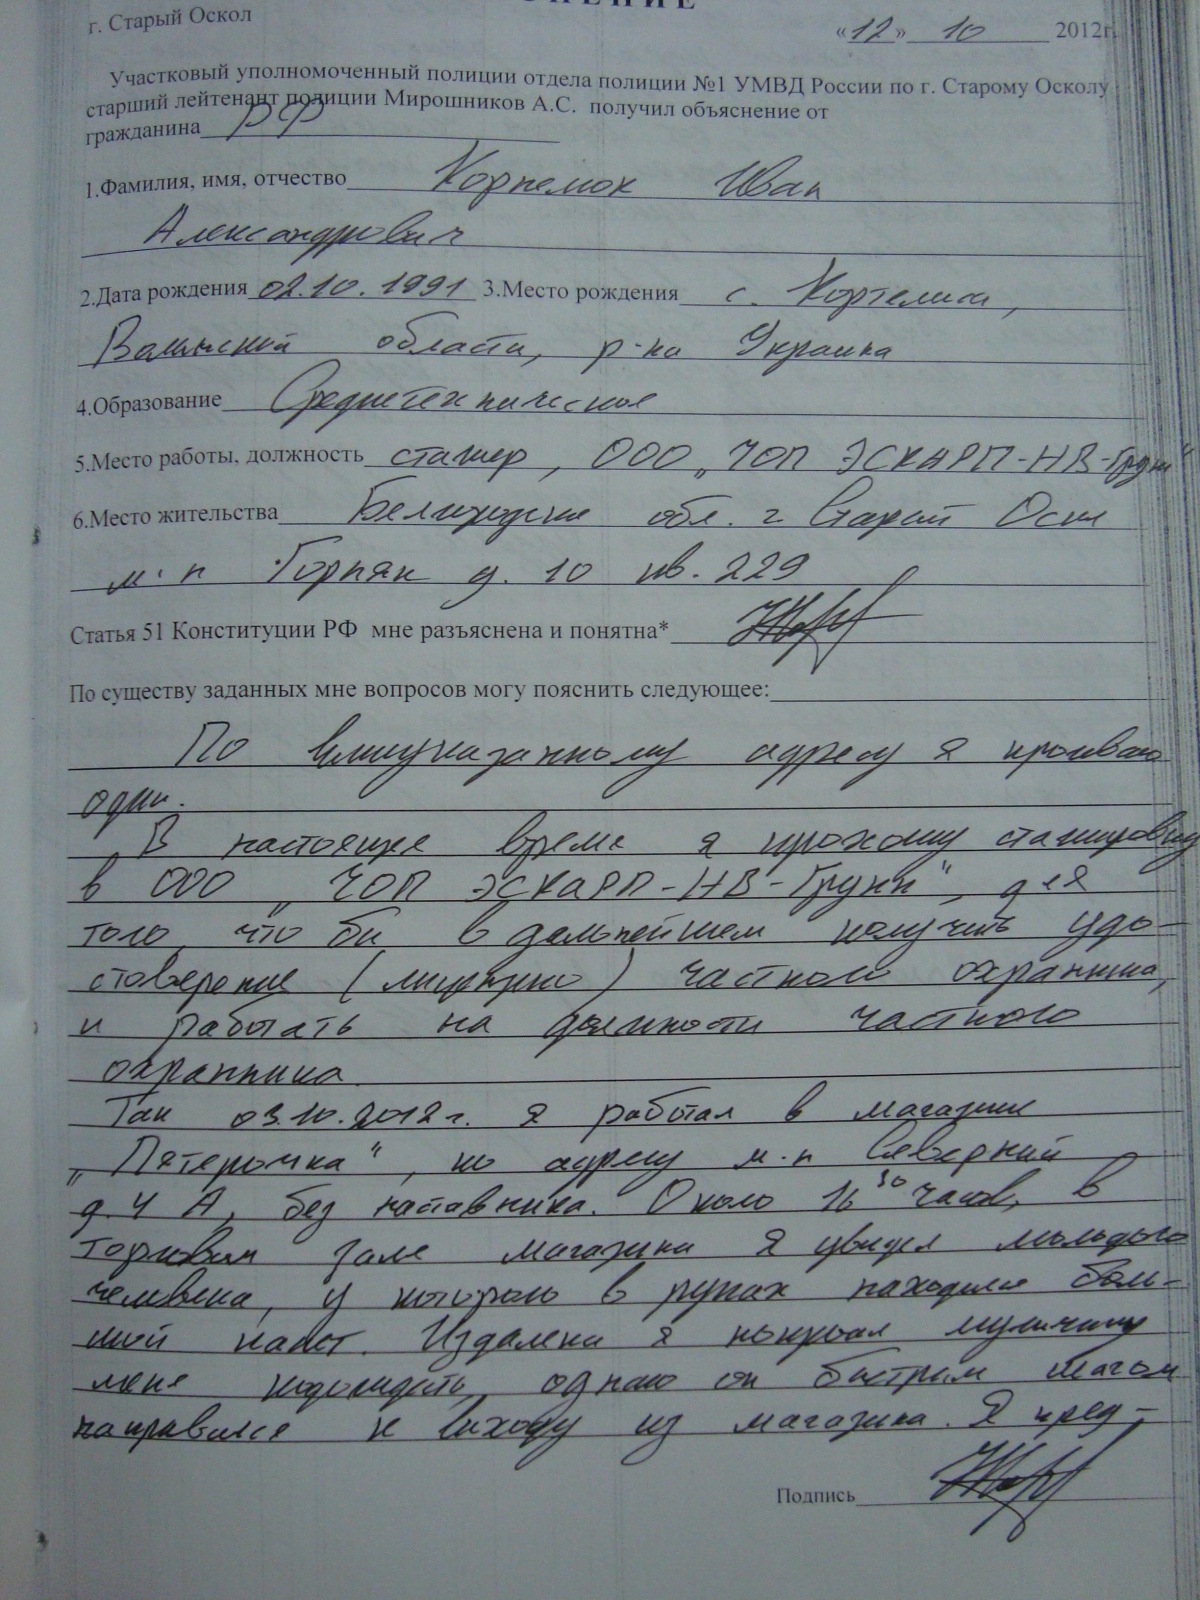 г. Старый Оскол
«12» 10 2012г.
Участковый уполномоченный полиции отдела полиции №1 УМВД России по г. Старому Осколу
старший лейтенант полиции Мирошников А.С. получил объяснение от
гражданина РФ
1.Фамилия, имя, отчество Иван
Александрович
2.Дата рождения 02.10.1991 3.Место рождения с. Кортелисы,
области, р-на Украина
4.Образование Среднетехническое
5.Место работы, должность стажер, ООО „ЧОП ЭСКАРП-НВ-Групп"
6.Место жительства Белгородская обл. г. Старый Оскол
м-н Горняк д. 10 кв. 229
Статья 51 Конституции РФ мне разъяснена и понятна*
По существу заданных мне вопросов могу пояснить следующее:
По вышеуказанному адресу я проживаю
один.
В настоящее время я прохожу стажировку
в ООО „ЧОП ЭСКАРП-НВ-Групп", для
того, что бы в дальнейшем получить удо-
стоверение (лицензию) частного охранника,
и работать на должности частного
охранника.
Так 03.10.2012г. я работал в магазине
„Пятерочка", по адресу м-н Северный
д. 4 А, без наставника. Около 16 30 часов, в
торговом зале магазина я увидел молодого
человека, у которого в руках находился боль-
шой пакет. Издалека я мужчину
меня подождать, однако он быстрым шагом
направился к выходу из магазина. Я пред-
Подпись